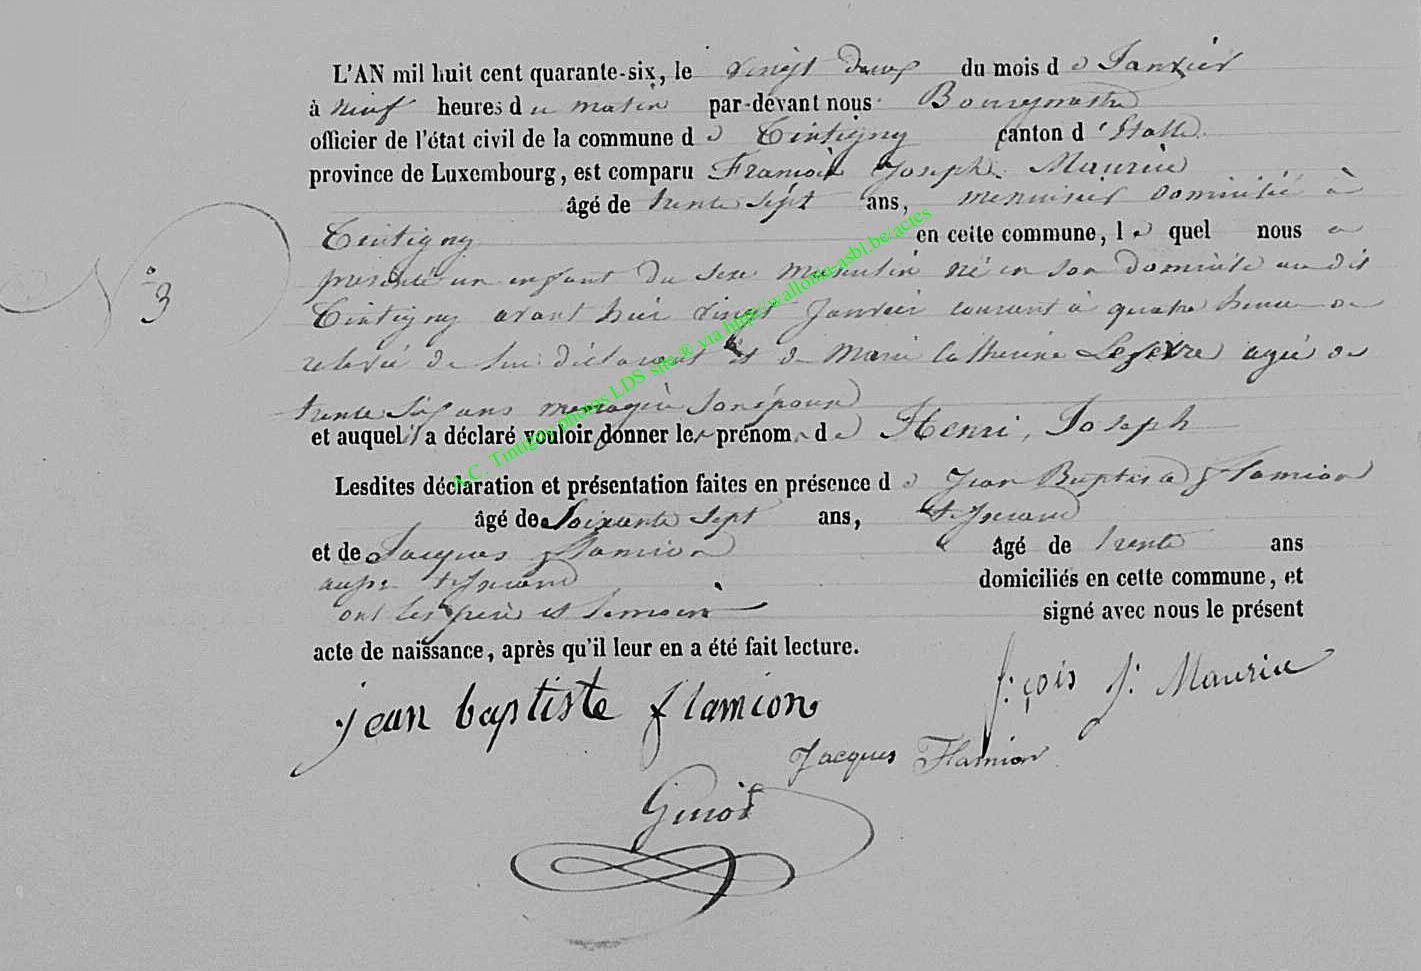 L'AN mil huit cent quarante-six, le vingt deux du mois de Janvier
à neuf heures du matin par-devant nous Bourgmestre
officier de l'état civil de la commune de Tintigny canton d'Etalle
province de Luxembourg, est comparu François Joseph Maurice
âgé de trente sept ans, menuisier domicilié à
Tintigny en cette commune, lequel nous a
N° 3
présenté un enfant du sexe masculin né en son domicile au dit
Tintigny avant hier vingt janvier courant à quatre heures de
relevée de lui déclarant et de Marie Catherine Lefevre agée de
trente ans menagère son épouse
et auquel il a déclaré vouloir donner les prénoms de Henri, Joseph
Lesdites déclaration et présentation faites en présence de Jean Baptiste Flamion
âgé de Soixante sept ans, tisserand
et de Jacques Flamion âgé de trente ans
aussi tisserand domiciliés en cette commune, et
ont les père et temoins signé avec nous le présent
acte de naissance, après qu'il leur en a été fait lecture.
jean baptiste flamion f:çois J: Maurice
Jacques Flamion
A.C. Tintigny photos LDS site® via http://wallonia-asbl.be/actes